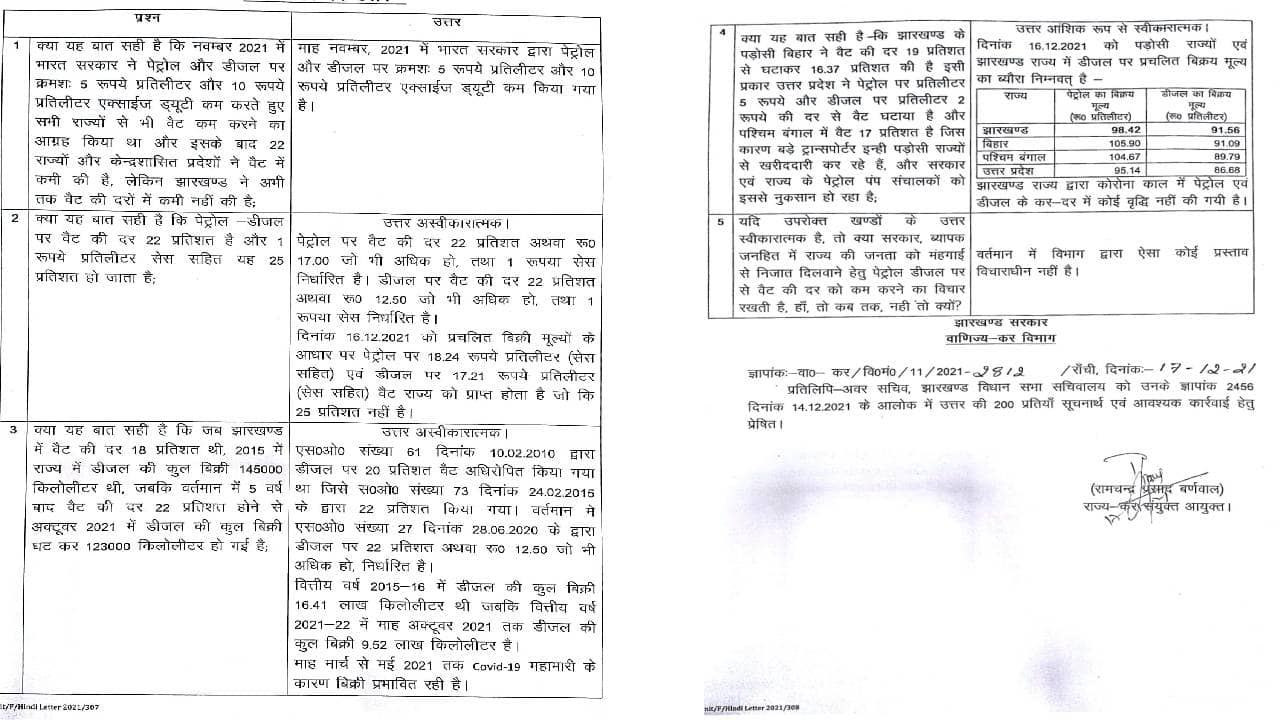 प्रश्न
उत्तर
1
क्या यह बात सही है कि नवम्बर 2021 में
भारत सरकार ने पेट्रोल और डीजल पर
क्रमशः 5 रूपये प्रतिलीटर और 10 रूपये
प्रतिलीटर एक्साईज ड्यूटी कम करते हुए
सभी राज्यों से भी वैट कम करने का
आग्रह किया था और इसके बाद 22
राज्यों और केन्द्रशासित प्रदेशों ने वैट में
कमी की है, लेकिन झारखण्ड ने अभी
तक वैट की दरों में कमी नहीं की है;
माह नवम्बर, 2021 में भारत सरकार द्वारा पेट्रोल
और डीजल पर क्रमशः 5 रूपये प्रतिलीटर और 10
रूपये प्रतिलीटर एक्साईज ड्यूटी कम किया गया
है।
2
क्या यह बात सही है कि पेट्रोल –डीजल
पर वैट की दर 22 प्रतिशत है और 1
रूपये प्रतिलीटर सेस सहित यह 25
प्रतिशत हो जाता है;
उत्तर अस्वीकारात्मक।
पेट्रोल पर वैट की दर 22 प्रतिशत अथवा रू0
17.00 जो भी अधिक हो, तथा 1 रूपया सेस
निर्धारित है। डीजल पर वैट की दर 22 प्रतिशत
अथवा रू0 12.50 जो भी अधिक हो, तथा 1
रूपया सेस निर्धारित है।
दिनांक 16.12.2021 को प्रचलित बिक्री मूल्यों के
आधार पर पेट्रोल पर 18.24 रूपये प्रतिलीटर (सेस
सहित) एवं डीजल पर 17.21 रूपये प्रतिलीटर
(सेस सहित) वैट राज्य को प्राप्त होता है जो कि
25 प्रतिशत नहीं है।
3
क्या यह बात सही है कि जब झारखण्ड
में वैट की दर 18 प्रतिशत थी, 2015 में
राज्य में डीजल की कुल बिक्री 145000
किलोलीटर थी, जबकि वर्तमान में 5 वर्ष
बाद वैट की दर 22 प्रतिशत होने से
अक्टूवर 2021 में डीजल की कुल बिक्री
घट कर 123000 किलोलीटर हो गई है;
उत्तर अस्वीकारात्मक।
एस0ओ0 संख्या 61 दिनांक 10.02.2010 द्वारा
डीजल पर 20 प्रतिशत वैट अधिरोपित किया गया
था जिसे स0ओ0 संख्या 73 दिनांक 24.02.2015
के द्वारा 22 प्रतिशत किया गया। वर्तमान मे
एस0ओ0 संख्या 27 दिनांक 28.06.2020 के द्वारा
डीजल पर 22 प्रतिशत अथवा रू0 12.50 जो भी
अधिक हो, निर्धारित है।
वित्तीय वर्ष 2015–16 में डीजल की कुल बिक्री
16.41 लाख किलोलीटर थी जबकि वित्तीय वर्ष
2021–22 में माह अक्टूवर 2021 तक डीजल की
कुल बिक्री 9.52 लाख किलोलीटर है।
माह मार्च से मई 2021 तक Covid-19 महामारी के
कारण बिक्री प्रभावित रही है।
nit/F/Hindi Letter 2021/307
4
क्या यह बात सही है–कि झारखण्ड के
पड़ोसी बिहार ने वैट की दर 19 प्रतिशत
से घटाकर 16.37 प्रतिशत की है इसी
प्रकार उत्तर प्रदेश ने पेट्रोल पर प्रतिलीटर
5 रूपये और डीजल पर प्रतिलीटर 2
रूपये की दर से वैट घटाया है और
पश्चिम बंगाल में वैट 17 प्रतिशत है जिस
कारण बड़े ट्रान्सपोर्टर इन्ही पड़ोसी राज्यों
से खरीददारी कर रहे हैं, और सरकार
एवं राज्य के पेट्रोल पंप संचालकों को
इससे नुकसान हो रहा है;
उत्तर आंशिक रूप से स्वीकारात्मक।
दिनांक 16.12.2021 को पड़ोसी राज्यों एवं
झारखण्ड राज्य में डीजल पर प्रचलित बिक्रय मूल्य
का ब्यौरा निम्नवत् है –
राज्य
पेट्रोल का बिक्रय
मूल्य
(रू0 प्रतिलीटर)
डीजल का बिक्रय
मूल्य
(रू0 प्रतिलीटर)
झारखण्ड 98.42 91.56
बिहार 105.90 91.09
पश्चिम बंगाल 104.67 89.79
उत्तर प्रदेश 95.14 86.68
झारखण्ड राज्य द्वारा कोरोना काल में पेट्रोल एवं
डीजल के कर–दर में कोई वृद्धि नहीं की गयी है।
5
यदि उपरोक्त खण्डों के उत्तर
स्वीकारात्मक है, तो क्या सरकार, ब्यापक
जनहित में राज्य की जनता को मंहगाई
से निजात दिलवाने हेतु पेट्रोल डीजल पर
से वैट की दर को कम करने का विचार
रखती है, हाँ, तो कब तक, नही तो क्यों?
वर्तमान में विभाग द्वारा ऐसा कोई प्रस्ताव
विचाराधीन नहीं है।
झारखण्ड सरकार
वाणिज्य–कर विभाग
ज्ञापांकः–वा0– कर/वि0मं0/11/2021-2812 /राँची, दिनांकः–17-12-21
प्रतिलिपि–अवर सचिव, झारखण्ड विधान सभा सचिवालय को उनके ज्ञापांक 2456
दिनांक 14.12.2021 के आलोक में उत्तर की 200 प्रतियाँ सूचनार्थ एवं आवश्यक कार्रवाई हेतु
प्रेषित।
(रामचन्द्र प्रसाद बर्णवाल)
राज्य–कर संयुक्त आयुक्त।
nit/F/Hindi Letter 2021/308